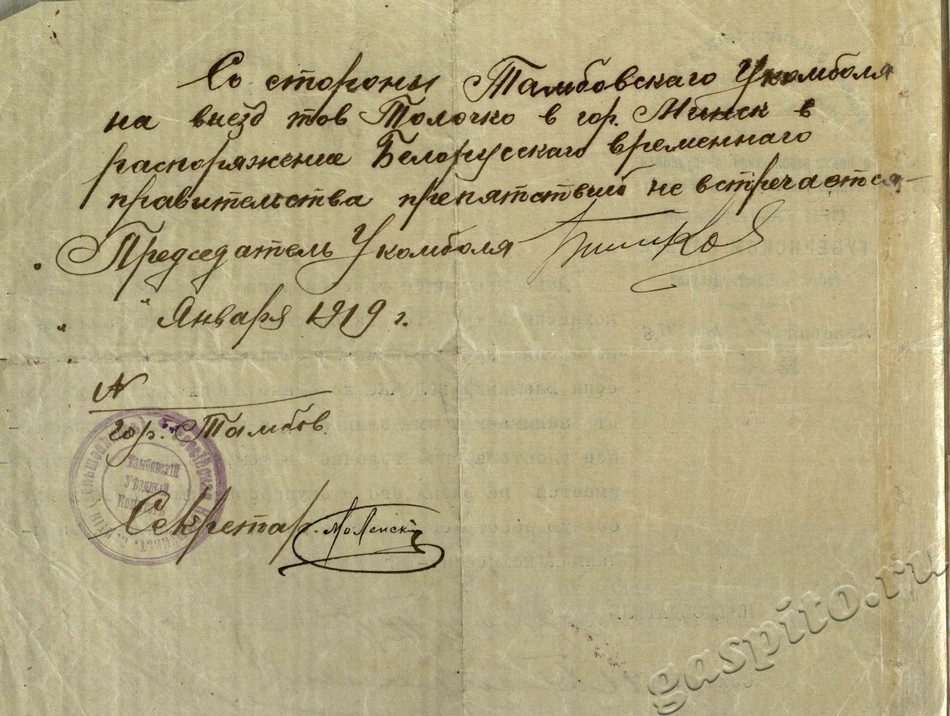 Со стороны Тамбовскаго Укомболя
на виезд тов Толочко в гор. Минск в
распоряжение Белорусскаго временнаго
правительства препятствий не встречается
Председатель Укомболя
" " Января 1919 г.
N
гор. Тамбов.
Тамбовскiй
Уѣздный
Секретар.
gaspito.ru